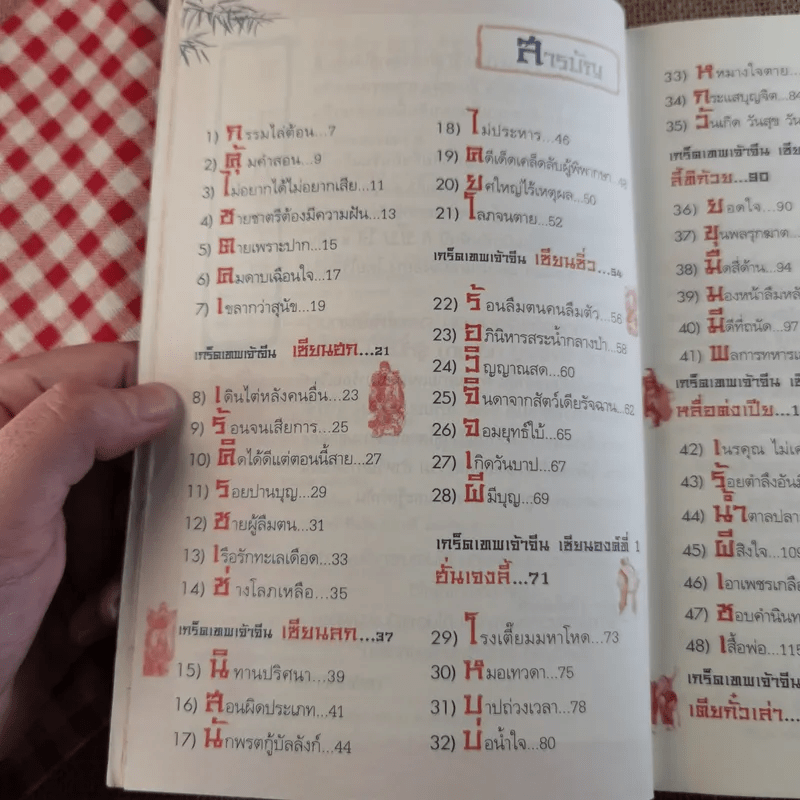 สารบัญ
1) กรรมไล่ต้อน...7
2) คุ้มคำสอน...9
3) ไม่อยากได้ไม่อยากเสีย...11
4) ชายชาตรีต้องมีความฝัน...13
5) ตายเพราะปาก...15
6) คมดาบเฉือนใจ...17
7) เขลากว่าสุนัข...19
เกร็ดเทพเจ้าจีน เซียนฮก...21
8) เดินไต่หลังคนอื่น...23
9) ร้อนจนเสียการ...25
10) คิดได้ดีแต่ตอนนี้สาย...27
11) รอยปานบุญ...29
12) ชายผู้ลืมตน...31
13) เรือรักทะเลเดือด...33
14) ช่างโลภเหลือ...35
เกร็ดเทพเจ้าจีน เซียนลก...37
15) นิทานปริศนา...39
16) สอนผิดประเภท...41
17) นักพรตกู้บัลลังก์...44
18) ไม่ประหาร...46
19) คดีเด็ดเคล็ดลับผู้พิพากษา...48
20) ยศใหญ่ไร้เหตุผล...50
21) โลภจนตาย...52
เกร็ดเทพเจ้าจีน เซียนซิ่ว...54
22) ร้อนลืมตนคนลืมตัว...56
23) อภินิหารสระน้ำกลางป่า...58
24) วิญญาณสด...60
25) จินดาจากสัตว์เดียรัจฉาน...62
26) จอมยุทธ์ใบ้...65
27) เกิดวันบาป...67
28) ผีมีบุญ...69
เกร็ดเทพเจ้าจีน เซียนองค์ที่ 1
ฮั่นเจงลี้...71
29) โรงเตี๊ยมมหาโหด...73
30) หมอเทวดา...75
31) บาปถ่วงเวลา...78
32) บ่อน้ำใจ...80
33) หหมางใจตาย...
34) กระแสบุญจิต...84
35) วันเกิด วันสุข วัน
เกร็ดเทพเจ้าจีน เซีย
ลี้ทิก๊วย...90
36) ยอดใจ...90
37) ขุนพลรุกฆาต...
38) มืดสี่ด้าน...94
39) มองหน้าลืมหลั
40) มีดีที่ถนัด...97
41) ผลการทหารแ
เกร็ดเทพเจ้าจีน เ
หลื่อต่งเปีย...1
42) เนรคุณ ไม่เ
43) ร้อยตำลึงอัน
44) น้ำตาลปลา
45) ผีสิงใจ...109
46) เอาเพชรเกลือ
47) ชอบคำนินท
48) เสื้อพ่อ...115
เกร็ดเทพเจ้าจีน เ
เตียก๊วยเล่า...